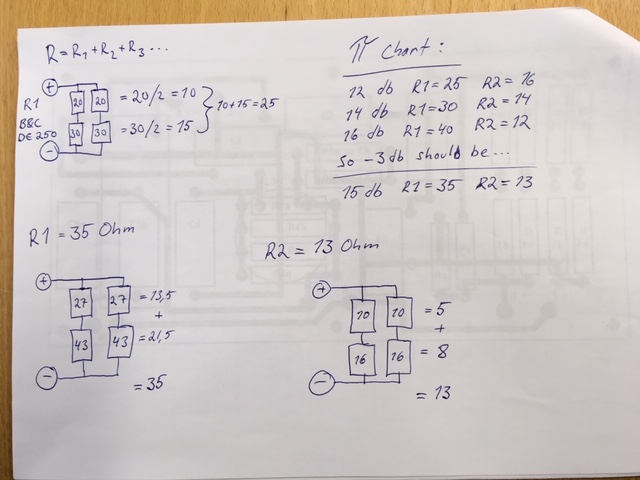 R = R1 + R2 + R3 ...
+
R1
B&C
DE 250
20 20 = 20/2 = 10
30 30 = 30/2 = 15
10+15 = 25
-
π chart:
12 db R1 = 25 R2 = 16
14 db R1 = 30 R2 = 14
16 db R1 = 40 R2 = 12
So -3 db should be ...
15 db R1 = 35 R2 = 13
R1 = 35 Ohm
+
27 27 = 13,5
+
43 43 = 21,5
-
= 35
R2 = 13 Ohm
+
10 10 = 5
+
16 16 = 8
-
= 13